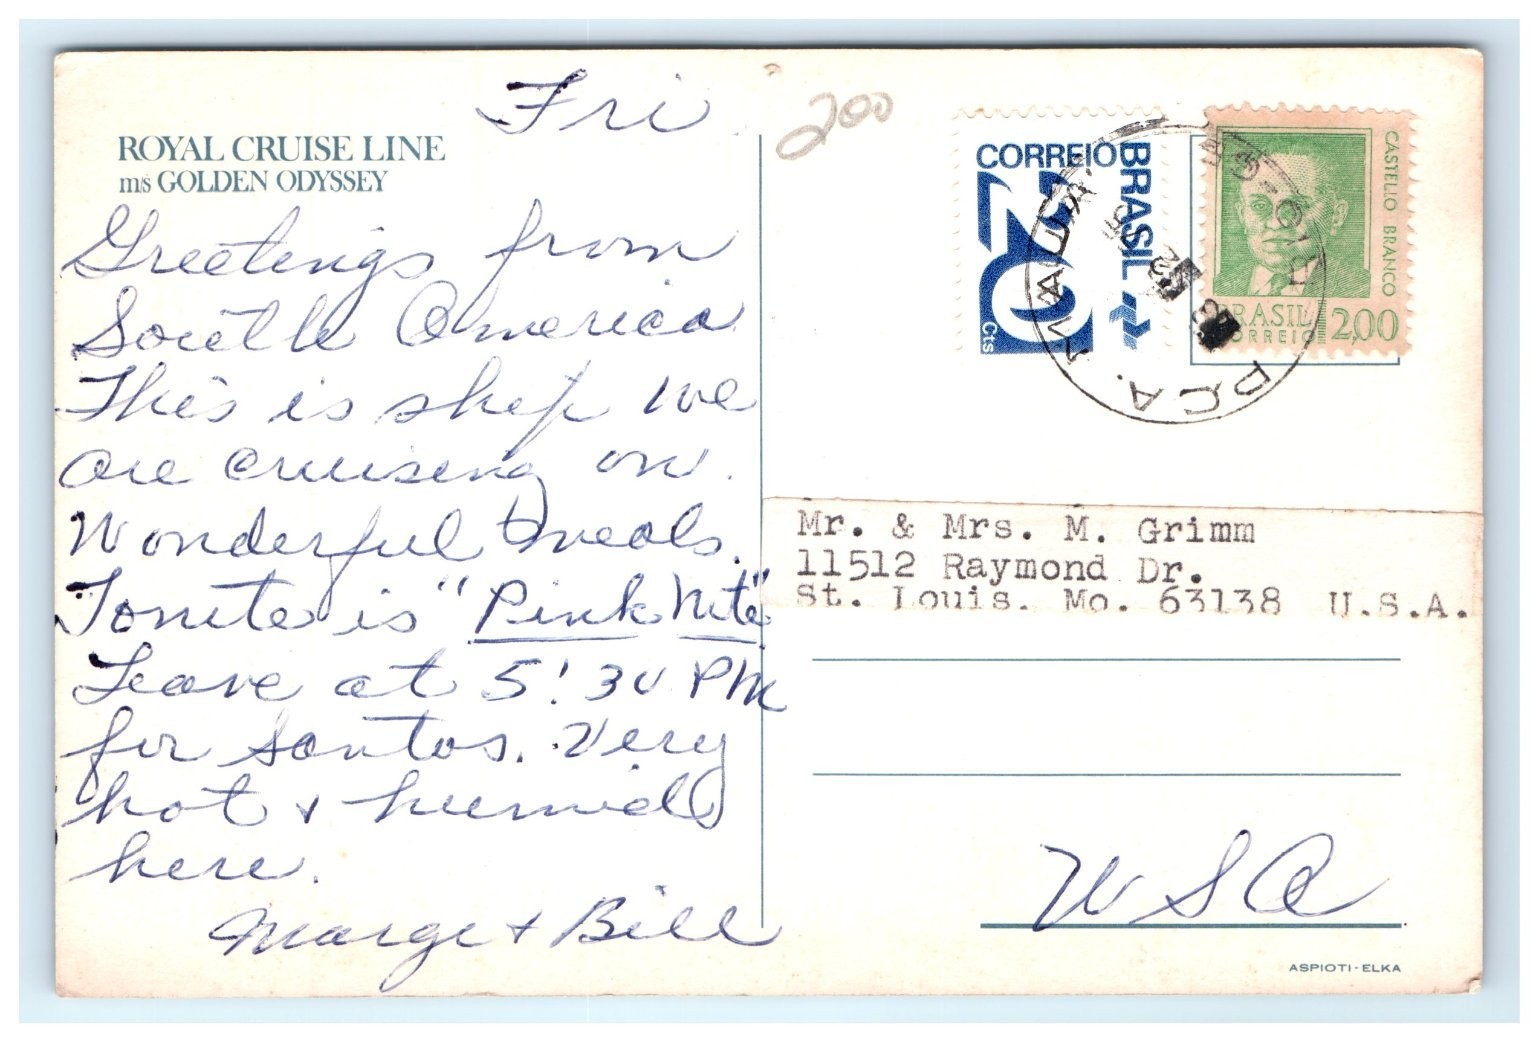 Fri
200
ROYAL CRUISE LINE
m/s GOLDEN ODYSSEY
Greetings from
South America
This is ship we
are cruising on.
Wonderful meals.
Tonite is "Pink Nite"
Leave at 5:30 PM
for Santos. Very
hot + humid
here.
Marge + Bill
CORREIO
BRASIL
20
Cts
CASTELLO BRANCO
BRASIL
CORREIO
2,00
PÇA. MAUÁ
Mr. & Mrs. M. Grimm
11512 Raymond Dr.
St. Louis. Mo. 63138 U.S.A.
USA
ASPIOTI-ELKA